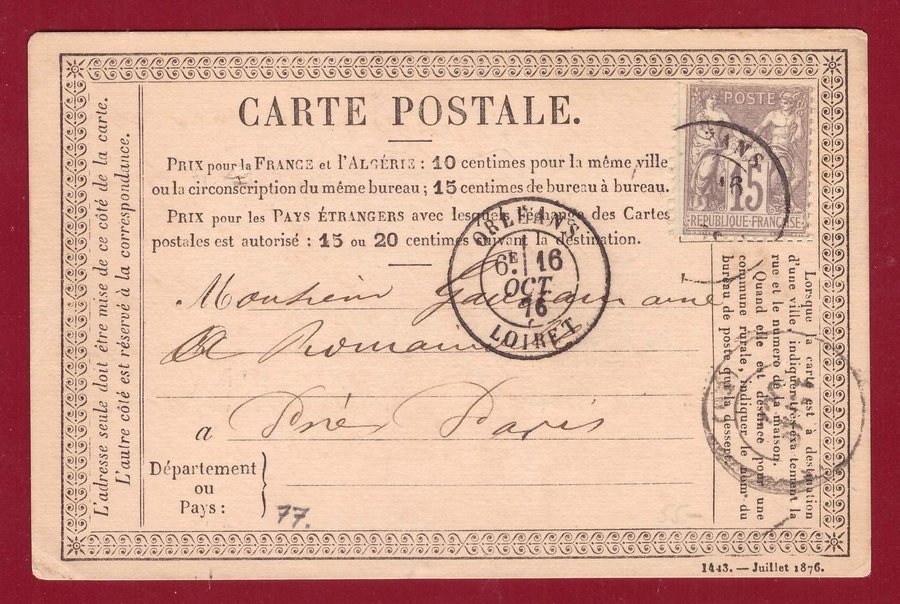 CARTE POSTALE.
PRIX pour la FRANCE et l'ALGÉRIE : 10 centimes pour la même ville
ou la circonscription du même bureau ; 15 centimes de bureau à bureau.
PRIX pour les PAYS ÉTRANGERS avec lesquels l'échange des Cartes
postales est autorisé : 15 ou 20 centimes suivant la destination.
L'adresse seule doit être mise de ce côté de la carte.
L'autre côté est réservé à la correspondance.
POSTE
15
REPUBLIQUE-FRANÇAISE
ANS
16
ORLÉANS
6E 16
OCT
76
LOIRET
Monsieur
à Romain
a Près Paris
Département
ou
Pays :
77.
Lorsque la carte est à destination
d'une ville, indiquer très-exactement la
rue et le numéro de la maison.
Quand elle est destinée pour une
commune rurale, indiquer le nom du
bureau de poste qui la dessert.
1443. — Juillet 1876.